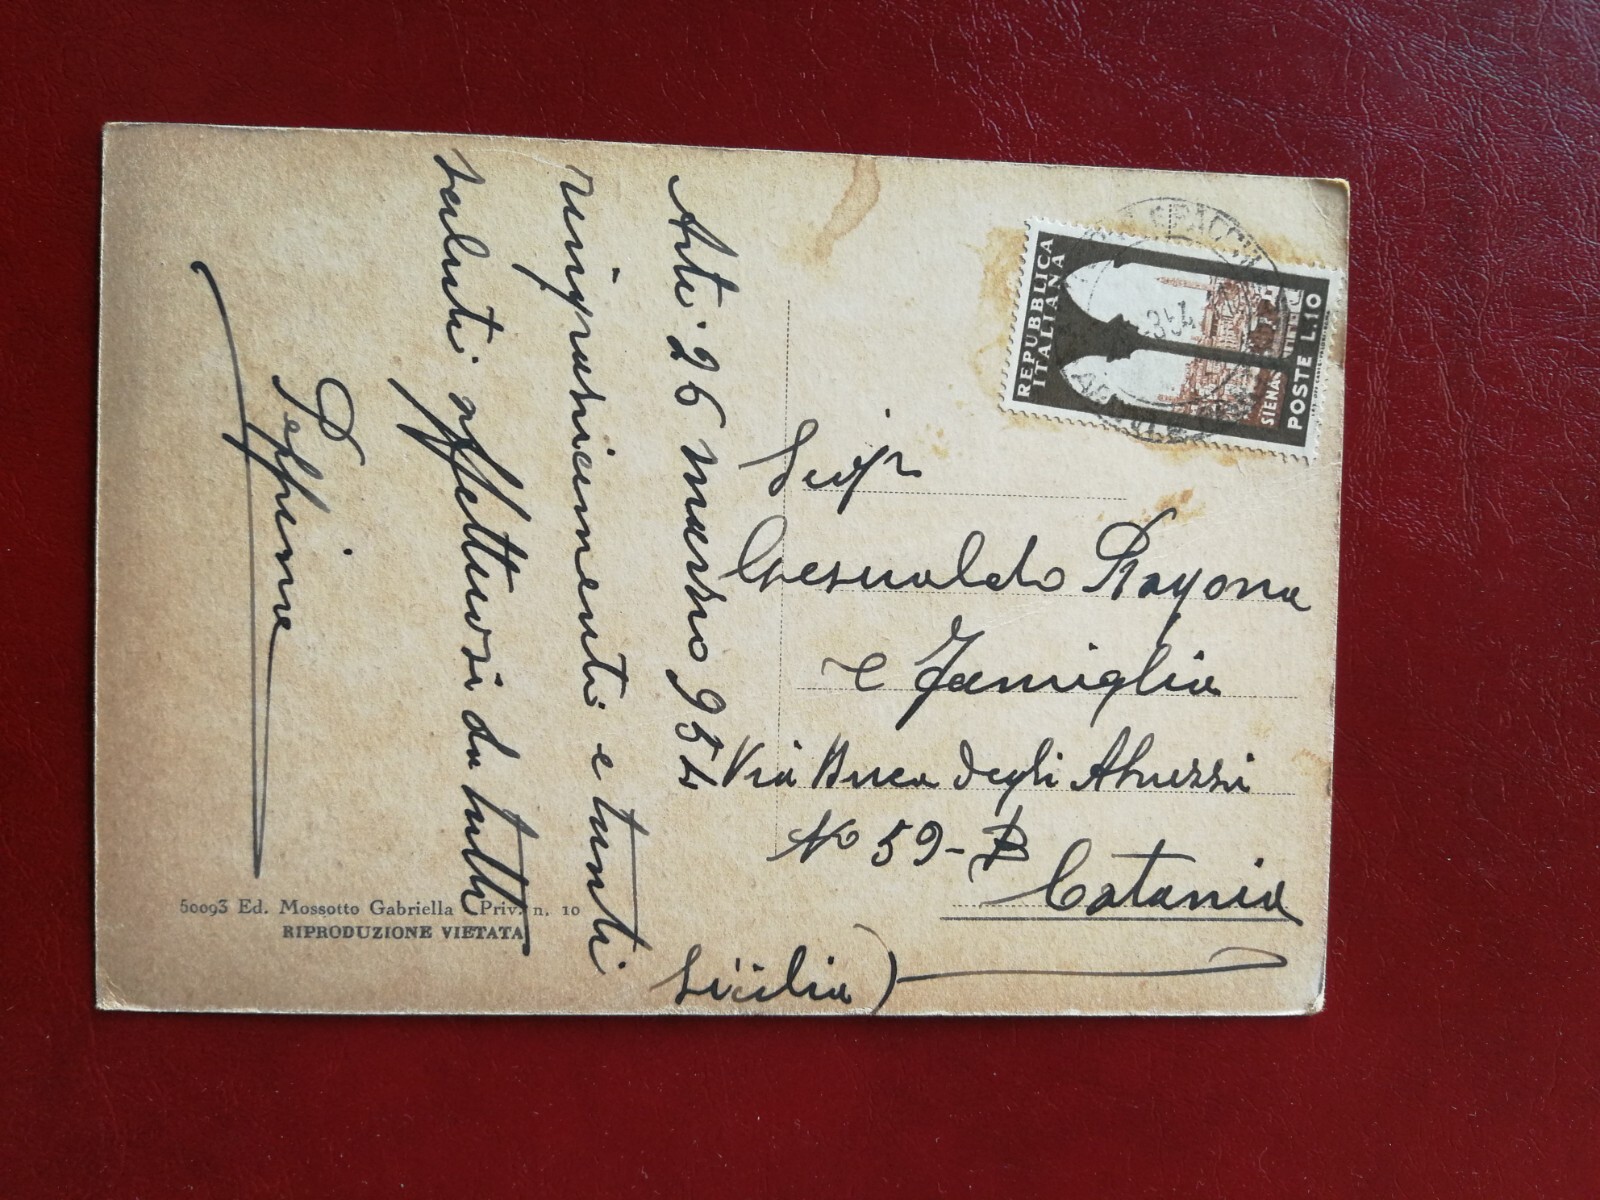 Asti 26 marzo 954
ringraziamenti e tanti
saluti affettuosi da tutti
Peppino
REPUBBLICA
ITALIANA
SIENA
POSTE L.10
Sigr
Gesualdo Ragona
e Famiglia
Via Duca degli Abruzzi
No 59-B
Catania
Sicilia)
50093 Ed. Mossotto Gabriella - Priv. n. 10
RIPRODUZIONE VIETATA